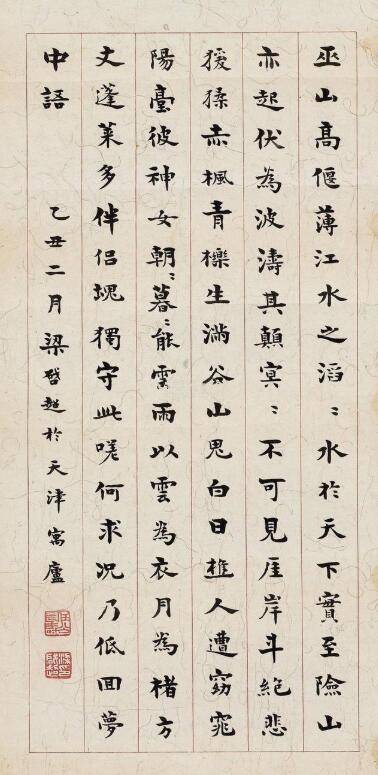 巫山高偃薄江水之滔〻水於天下實至險山
亦起伏為波濤其顛冥〻不可見厓岸斗絕悲
猨猱赤楓青櫟生滿谷山鬼白日樵人遭窈窕
陽臺彼神女朝〻暮〻能雲雨以雲為衣月為楮方
丈蓬萊多伴侶塊獨守此嗟何求況乃低回夢
中語 乙丑二月梁啓超於天津寓廬